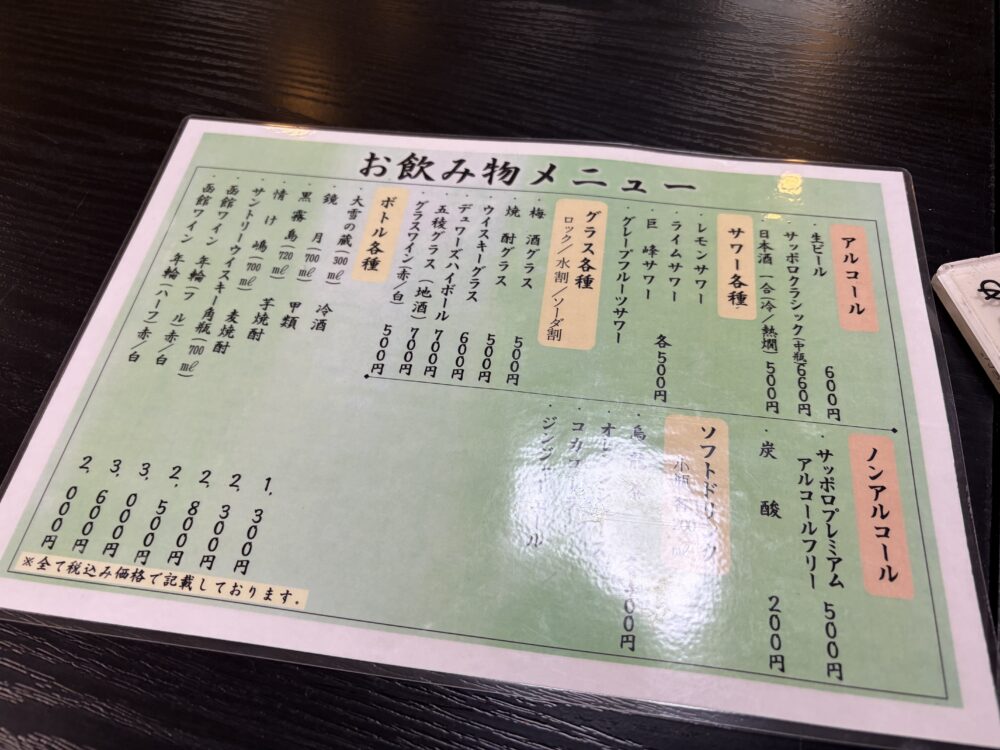 お飲み物メニュー
アルコール
・生ビール 600円
・サッポロクラシック(中瓶)660円
・日本酒(一合)(冷/熱燗)500円
サワー各種
・レモンサワー
・ライムサワー
・巨峰サワー 各500円
・グレープフルーツサワー
グラス各種
ロック/水割/ソーダ割
・梅酒グラス
・焼酎グラス 500円
・ウイスキーグラス 500円
・デュワーズハイボール 600円
・五稜グラス(地酒) 700円
・グラスワイン(赤/白) 500円
ボトル各種
・大雪の蔵(300㎖) 冷酒 1,300円
・鏡月(700㎖) 甲類 2,300円
・黒霧島(720㎖) 芋焼酎 2,800円
・情け嶋(700㎖) 麦焼酎 2,500円
・サントリーウイスキー角瓶(700㎖) 3,000円
・函館ワイン 年輪(フル)赤/白 3,600円
・函館ワイン 年輪(ハーフ)赤/白 2,000円
ノンアルコール
・サッポロプレミアム
アルコールフリー 500円
・炭酸 200円
ソフトドリンク
小瓶各200㎖
・烏龍茶
・オレンジジュース
・コカコーラ
・ジンジャーエール
※全て税込み価格で記載しております。